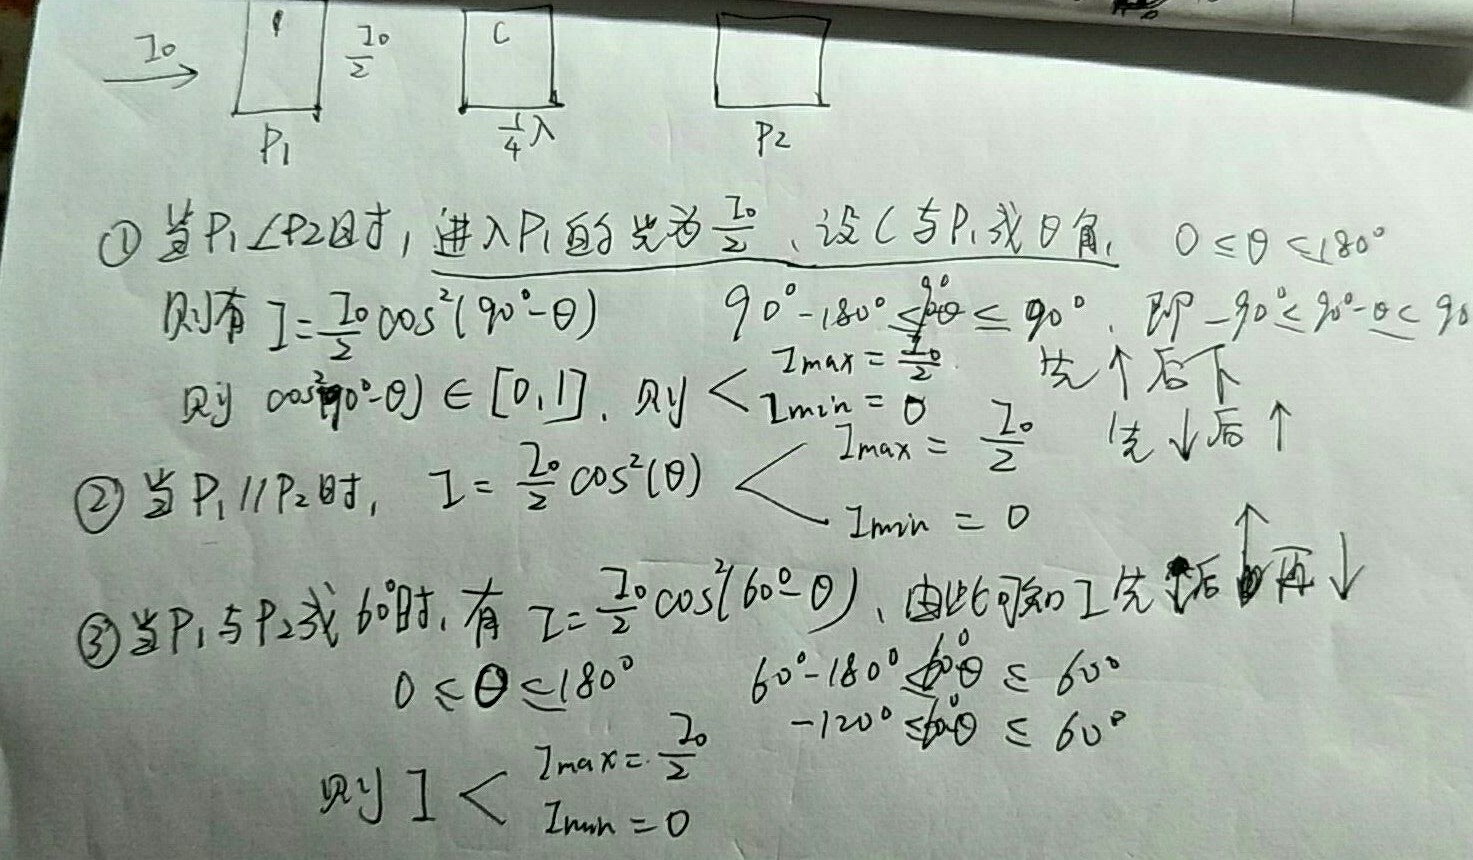 I₀ P₁ I₀/2 C 1/4 λ P2
① 当P₁⊥P2时, 进入P₁的光为 I₀/2、设C与P₁成θ角, 0≤θ≤180°
则有 I= I₀/2 cos²(90°-θ) 90°-180° ≤ 90°-θ ≤ 90°. 即 -90°≤90°-θ≤90
则 cos²(90°-θ) ∈ [0,1]. 则 < Imax = I₀/2 Imin = 0 先↑后下
② 当P₁//P₂时, I = I₀/2 cos²(θ) < Imax = I₀/2 Imin = 0 先↓后↑
③ 当P₁与P₂成60°时, 有 I= I₀/2 cos²(60°-θ)、由此可知I先 后↑再↓
0≤θ≤180° 60°-180° ≤ 60°-θ ≤ 60°
-120° ≤ 60°-θ ≤ 60°
则 I < Imax= I₀/2 Imin=0